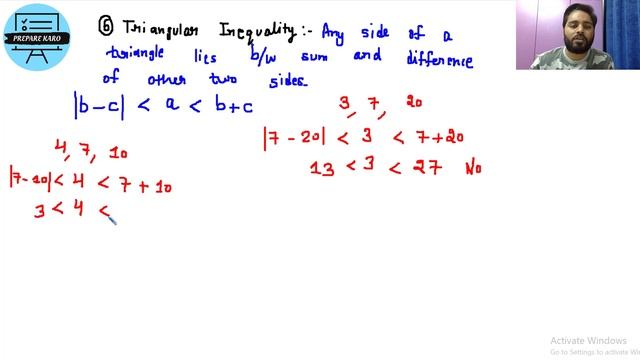 PREPARE KARO
⑥ Triangular Inequality:- Any side of a
triangle lies b/w sum and difference
of other two sides.
|b-c| < a < b+c
3, 7, 20
|7-20| < 3 < 7+20
13 < 3 < 27 No
4, 7, 10
|7-10| < 4 < 7+10
3 < 4 <
Activate Windows
Go to Settings to activate Wi